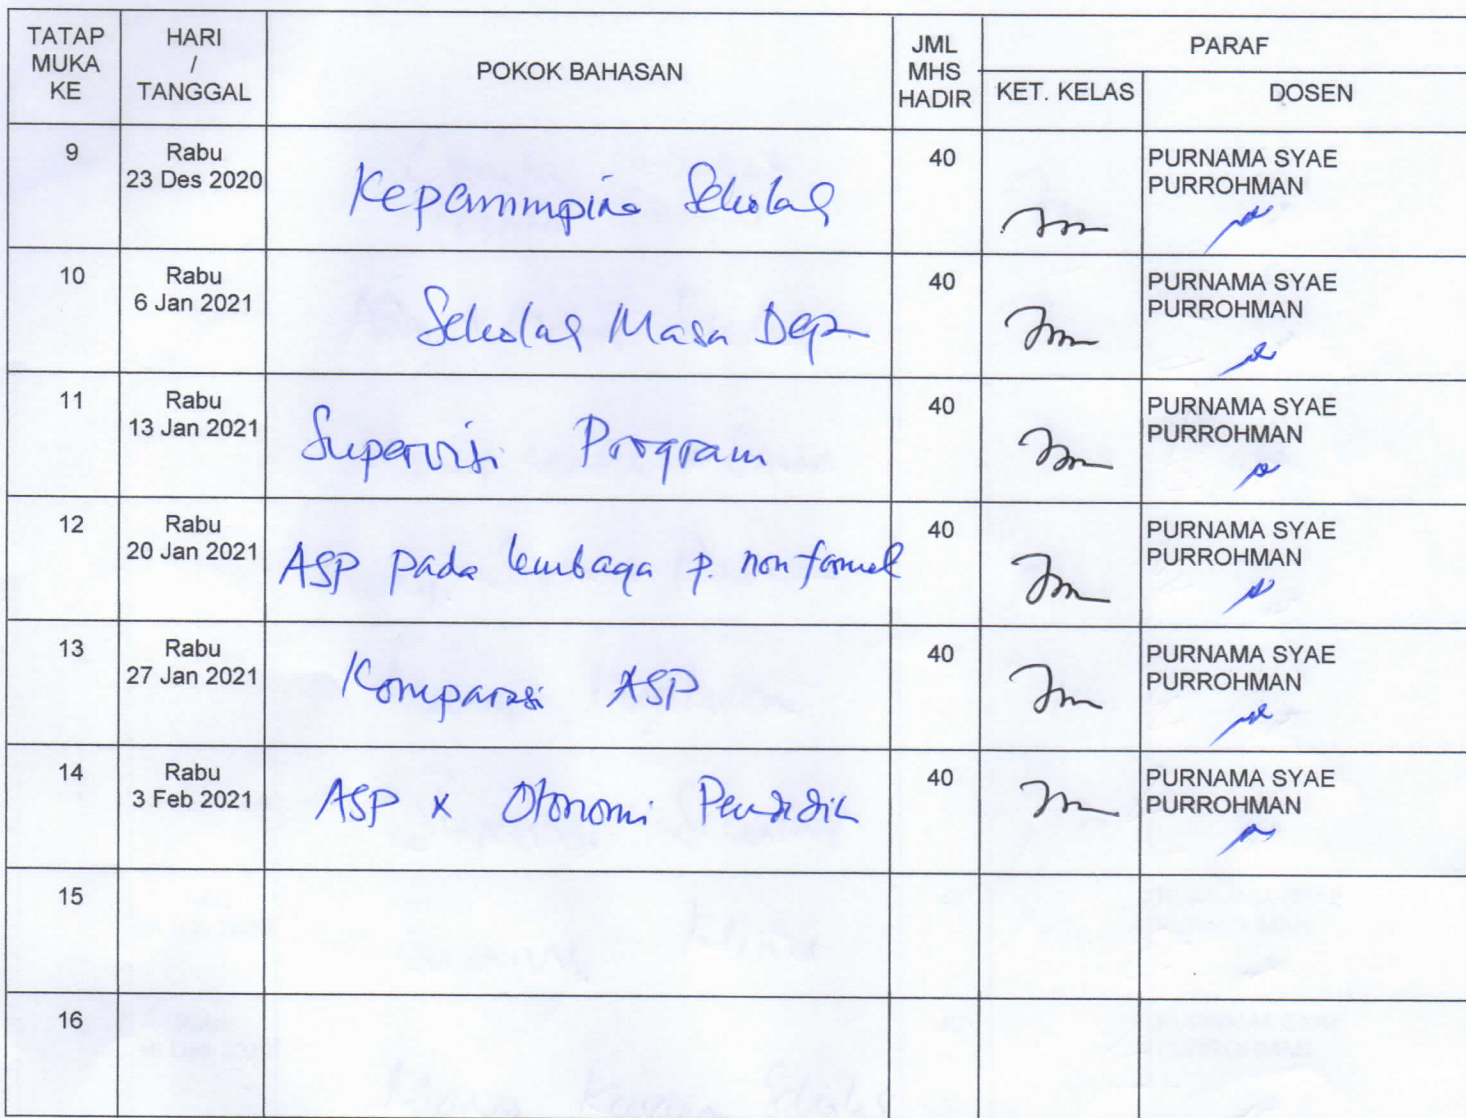 TATAP MUKA KE
HARI / TANGGAL
POKOK BAHASAN
JML MHS HADIR
PARAF
KET. KELAS
DOSEN
9
Rabu
23 Des 2020
Kepemimpina Sekolah
40
PURNAMA SYAE
PURROHMAN
10
Rabu
6 Jan 2021
Sekolah Masa Dep
40
PURNAMA SYAE
PURROHMAN
11
Rabu
13 Jan 2021
Supervisi Program
40
PURNAMA SYAE
PURROHMAN
12
Rabu
20 Jan 2021
ASP pada lembaga p. non formal
40
PURNAMA SYAE
PURROHMAN
13
Rabu
27 Jan 2021
Komparasi ASP
40
PURNAMA SYAE
PURROHMAN
14
Rabu
3 Feb 2021
ASP x Otonomi Pendidik
40
PURNAMA SYAE
PURROHMAN
15
16